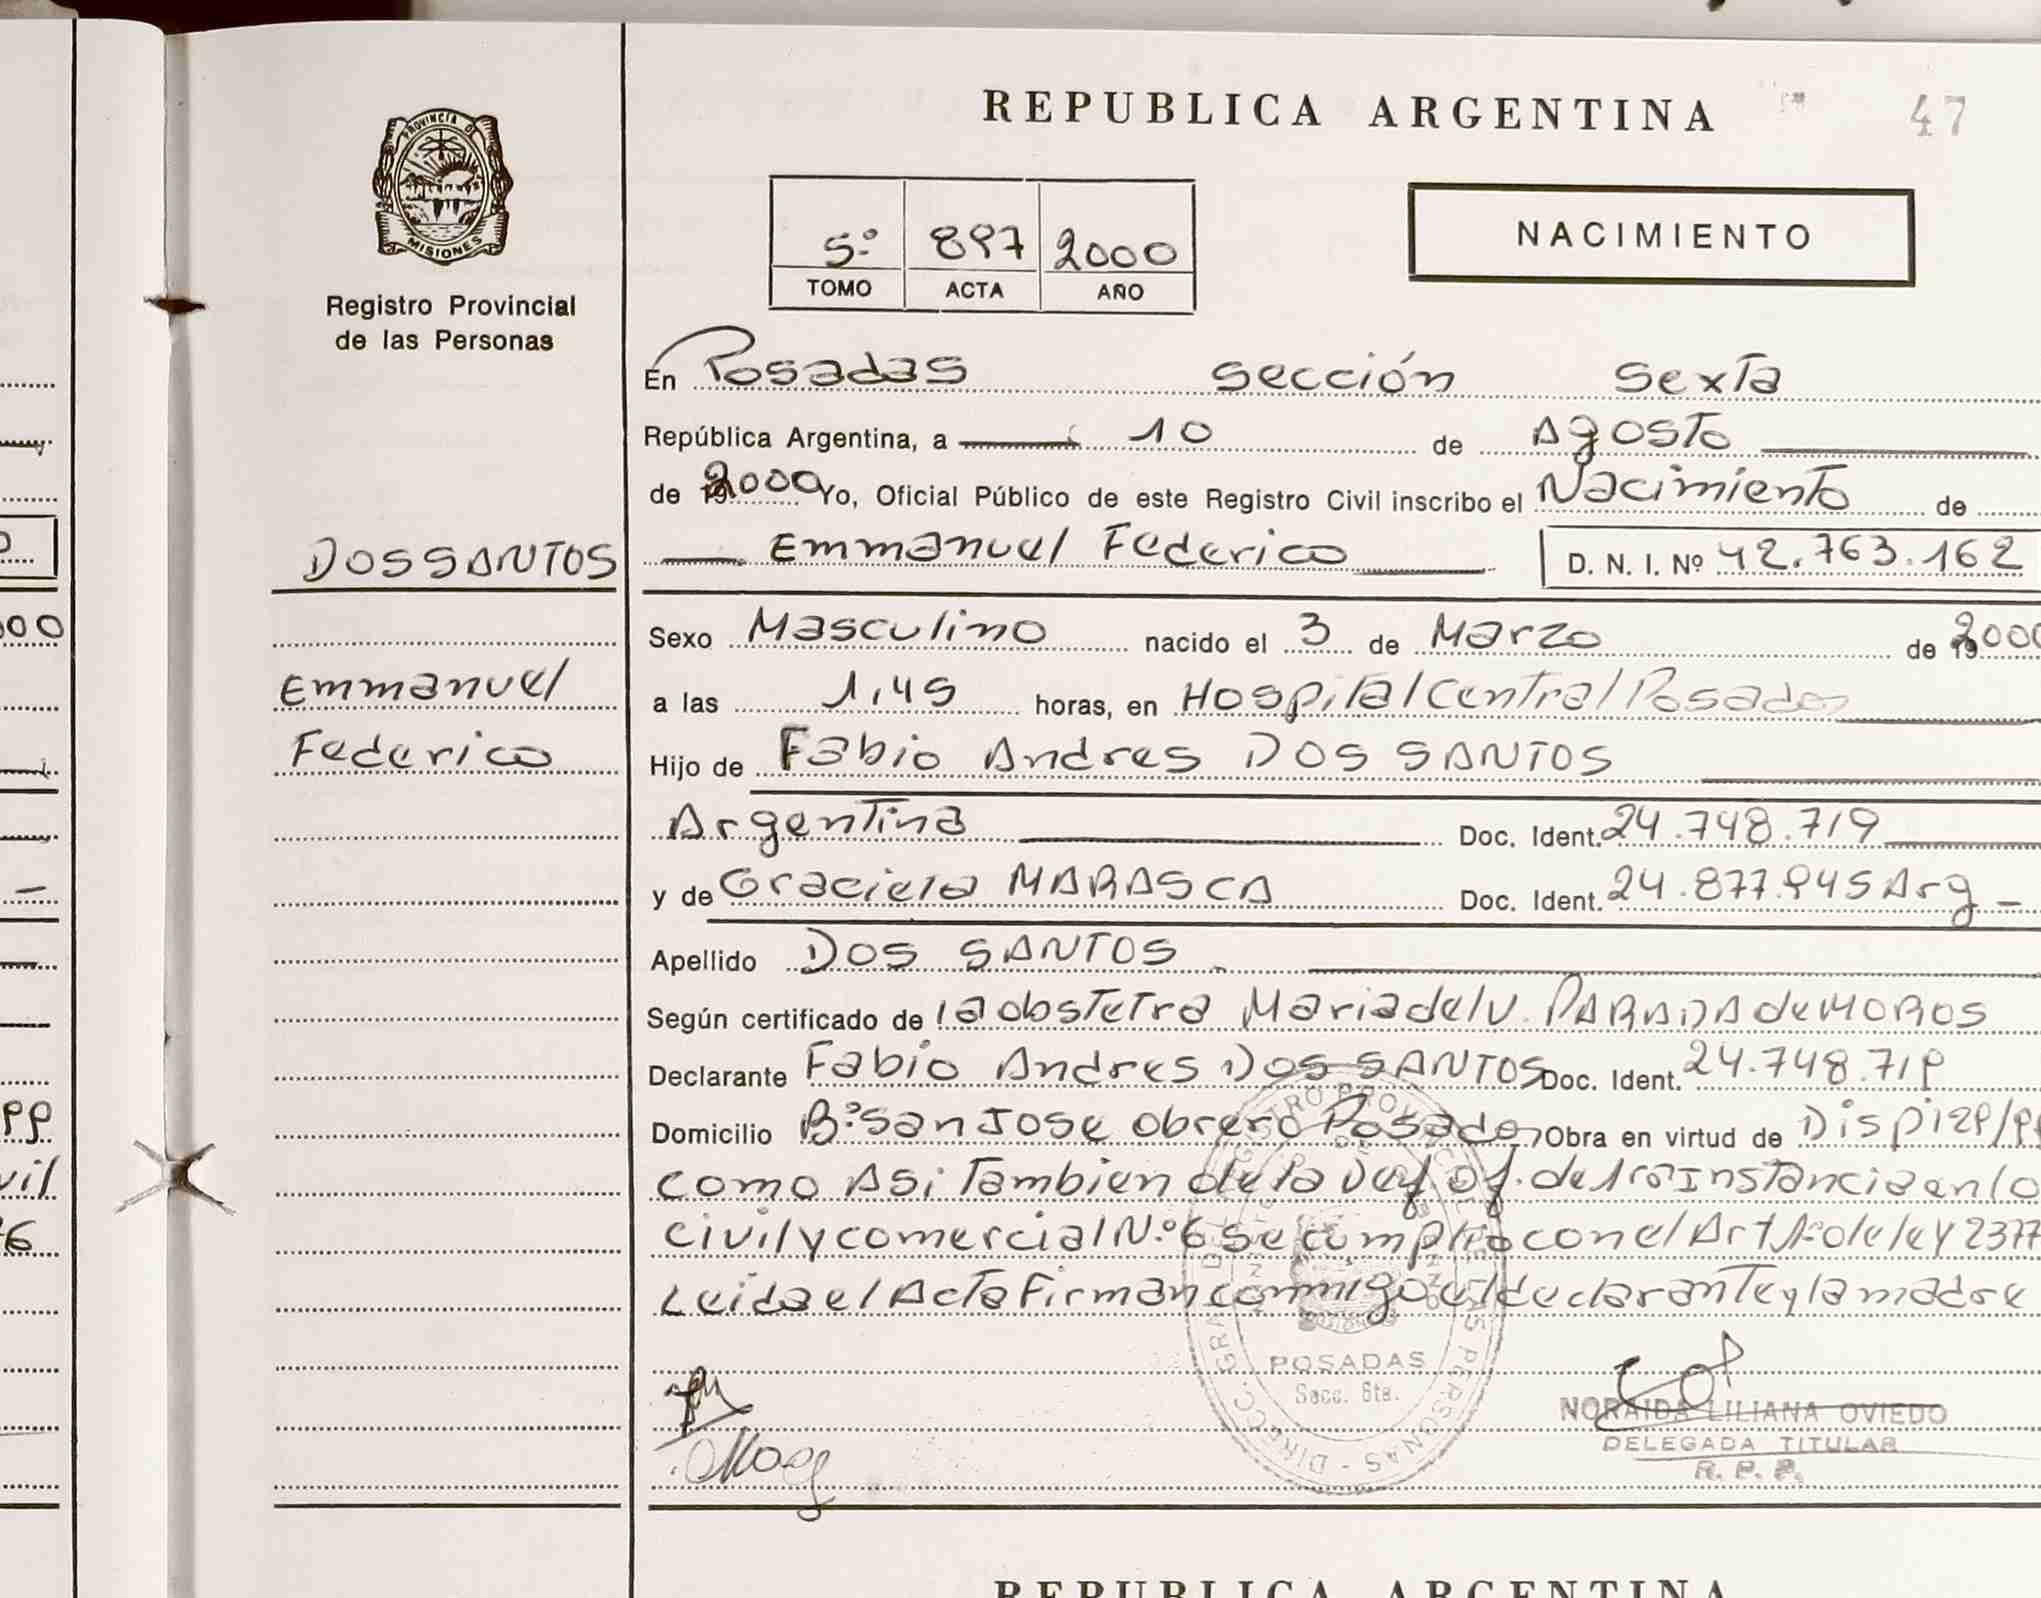 REPUBLICA ARGENTINA
47
PROVINCIA DE
MISIONES
Registro Provincial
de las Personas
5º 897 2000
TOMO ACTA AÑO
NACIMIENTO
En Posadas sección sexta
República Argentina, a 10 de Agosto
de 2000 Yo, Oficial Público de este Registro Civil inscribo el Nacimiento de
DOS SANTOS
Emmanuel Federico
D. N. I. Nº 42.763.162
Sexo Masculino nacido el 3 de Marzo de 2000
Emmanuel
Federico
a las 1,45 horas, en Hospital Central Posadas
Hijo de Fabio Andres DOS SANTOS
Argentina Doc. Ident. 24.748.719
y de Graciela MARASCA Doc. Ident. 24.877.945 Arg
Apellido DOS SANTOS
Según certificado de la obstetra Maria del V. PARADA de MOROS
Declarante Fabio Andres DOS SANTOS Doc. Ident. 24.748.719
Domicilio Bº San Jose obrero Posadas Obra en virtud de Disp 129/9
como Asi Tambien de la Def. Of. de 1ra Instancia en lo
civil y comercial N.º 6 se cumplio con el Art 1º de ley 2377
Leida el Acta Firman conmigo el declarante y la madre
POSADAS
Secc. 6ta.
NORAIDA LILIANA OVIEDO
DELEGADA TITULAR
R. P. P.
REPUBLICA ARGENTINA